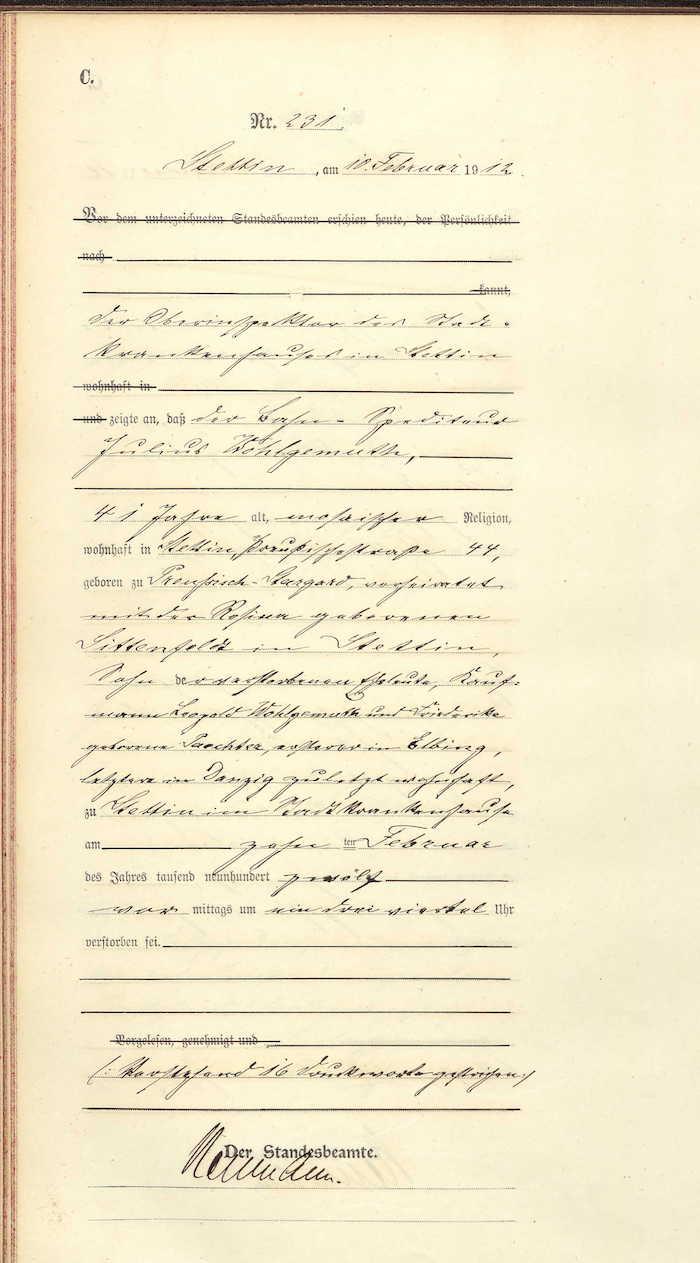 C.
Nr. 231.
Stettin, am 10. Februar 1912.
Vor dem unterzeichneten Standesbeamten erschien heute, der Persönlichkeit
nach
kannt,
Der Oberinspektor des Stadt-
krankenhauses in Stettin
wohnhaft in
und zeigte an, daß der Bahn-Spediteur
Julius Wohlgemuth,
41 Jahre alt, mosaischer Religion,
wohnhaft in Stettin, Preußischestraße 44,
geboren zu Preußisch-Stargard, verheiratet
mit der Rosina geborenen
Littenfeldt in Stettin,
Sohn der verstorbenen Eheleute, Kauf-
mann Leopold Wohlgemuth und Friederike
geborene Paechter, ersterer in Elbing,
letztere in Danzig zuletzt wohnhaft,
zu Stettin im Stadtkrankenhause
am zehn ten Februar
des Jahres tausend neunhundert zwölf
vor mittags um ein drei viertel Uhr
verstorben sei.
Vorgelesen, genehmigt und
(: Vorstehend 16 Druckworte gestrichen :)
Der Standesbeamte.